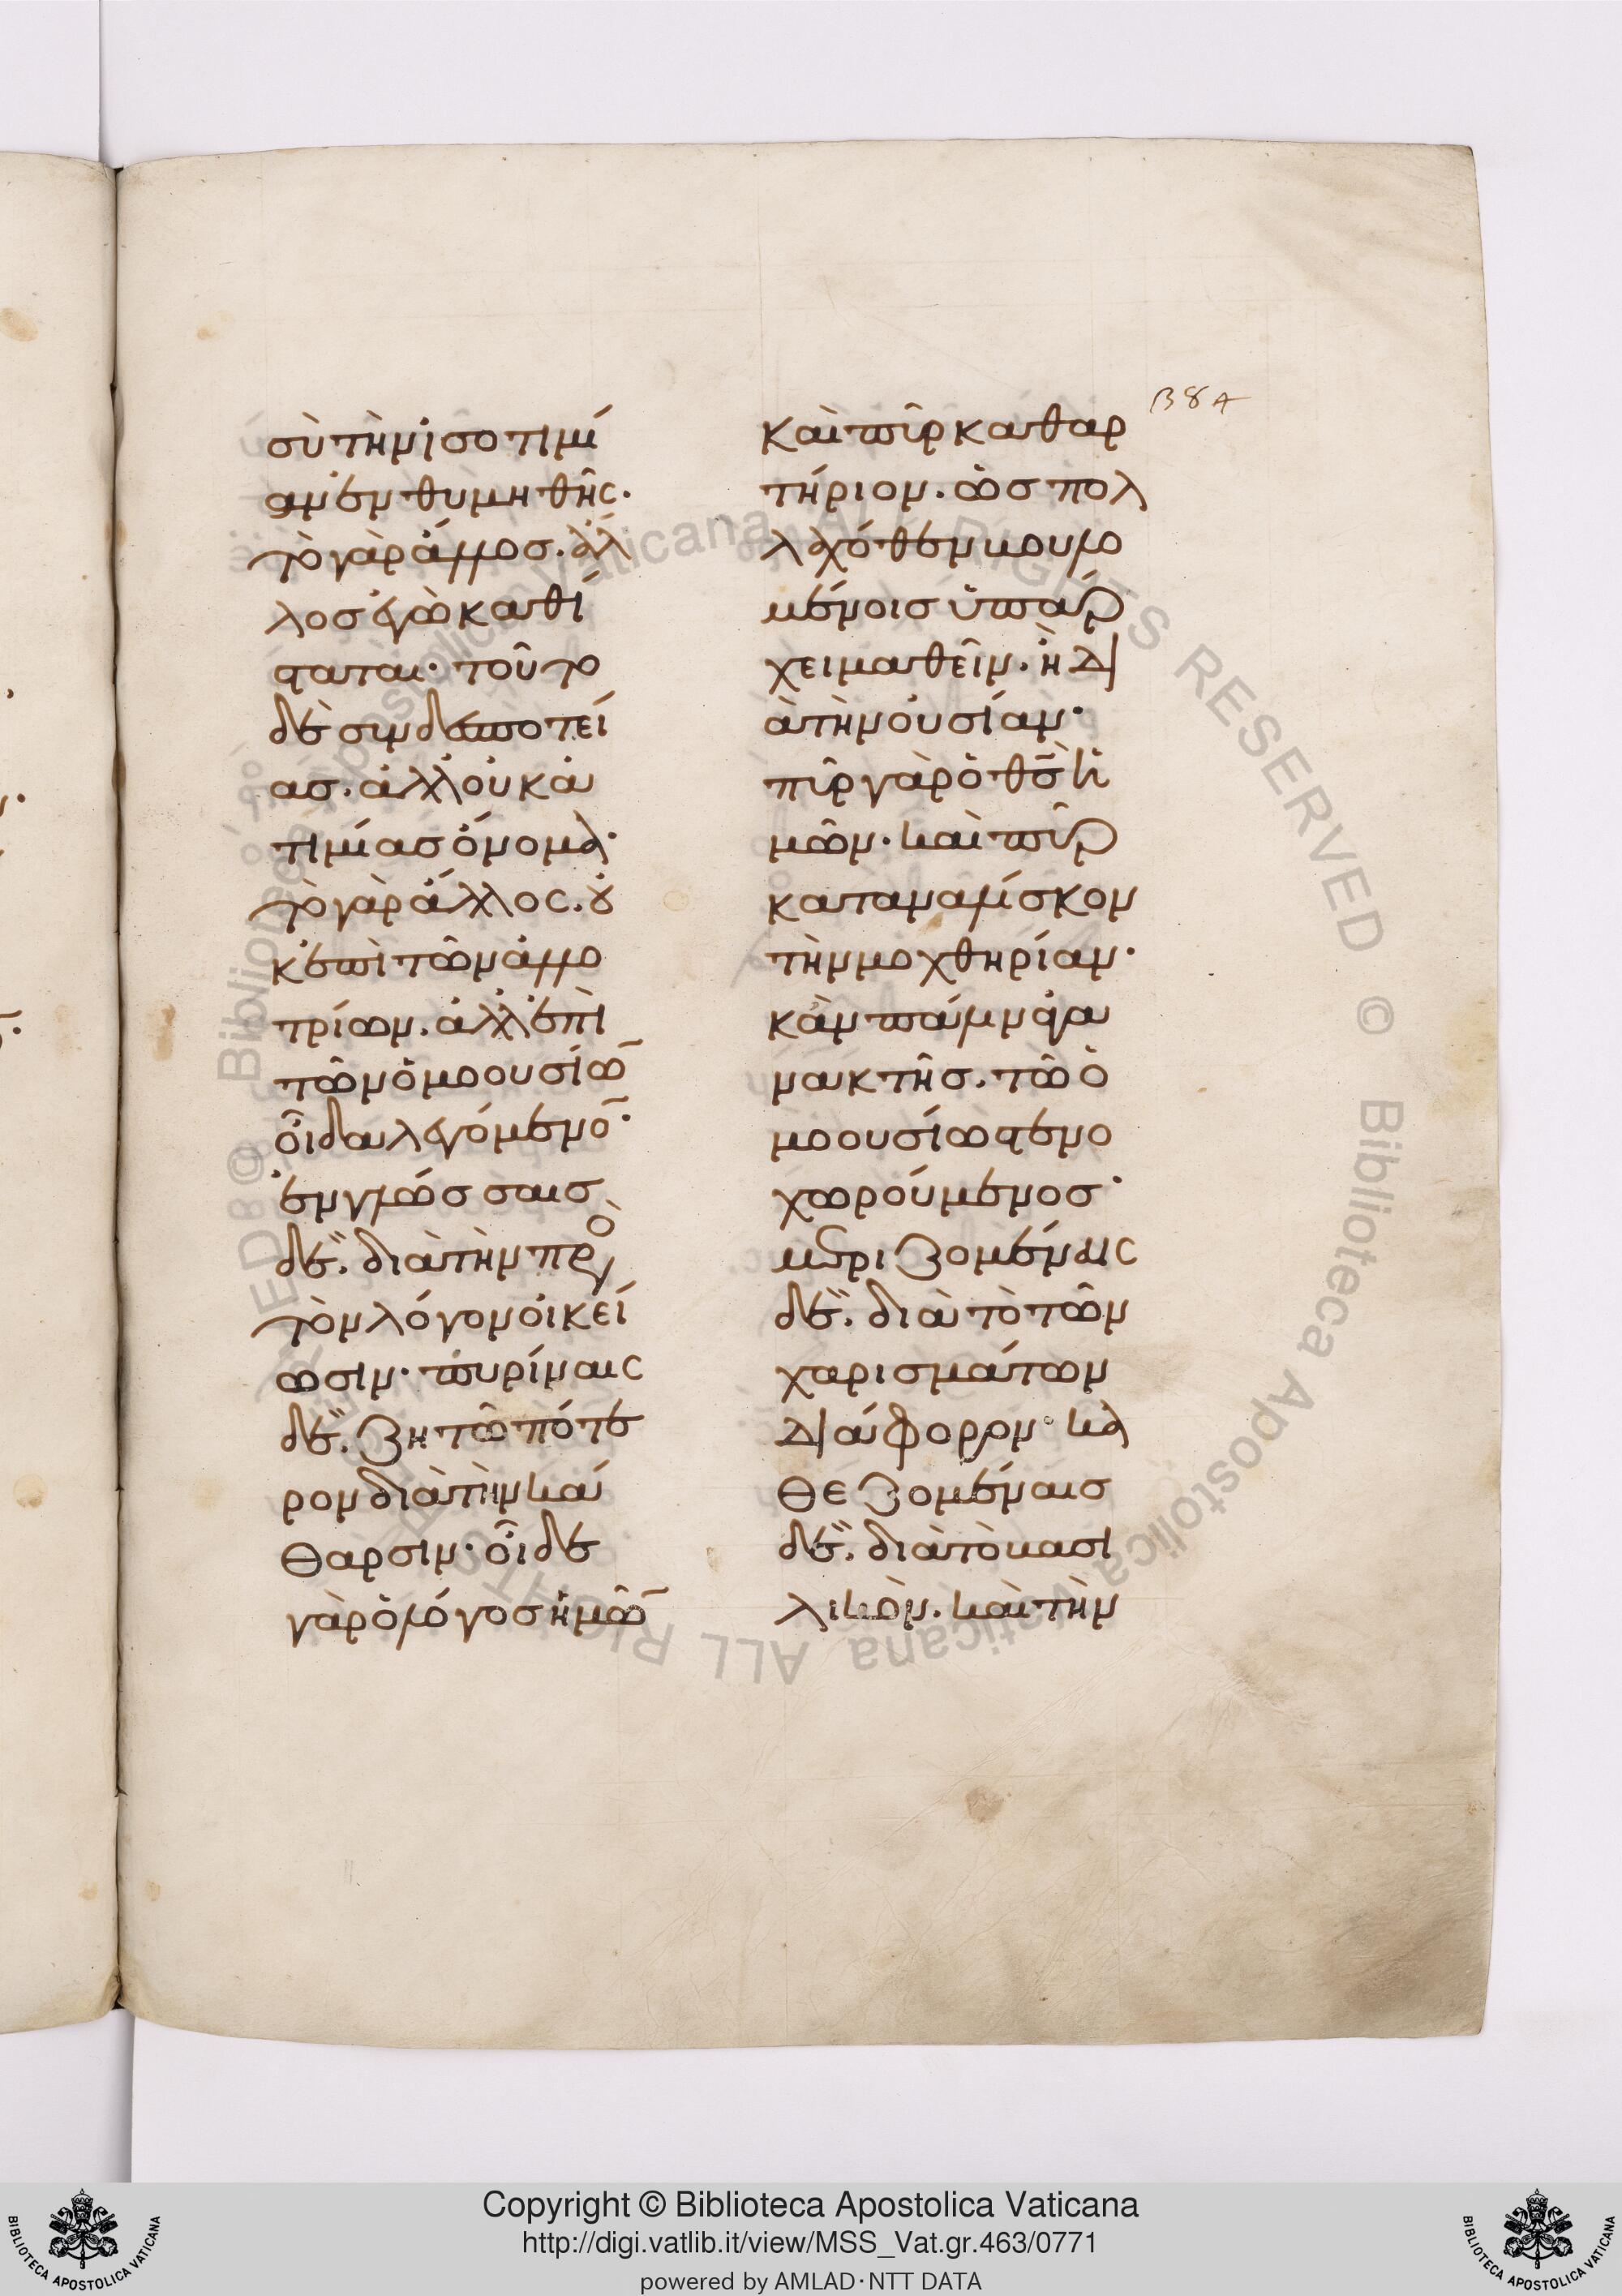 σὺ τὴν ἰσοτιμί
αν ἐνθυμηθῇς·
τὸ γὰρ ἄλλος. ἀλ
λος ἐφῶ καθί
σταται· τοῦτο
δὲ σινδεσποτεί
ασ. ἀλλ' οὐκ ἀ
τιμίασ ὄνομα·
τὸ γὰρ ἄλλος. ȣ
κ ἐπὶ τῶν ἀλλο
τρίων. ἀλλ' ἐπὶ
τῶν ὁμοουσίω̅
οἶδα λεγόμενο̅·
ἐν γλώσσαισ
δὲ. διὰ τὴν πρὸ
τὸν λόγον οἰκεί
ωσιν· πυρίναις
δὲ. ζητῶ πότε
ρον διὰ τὴν κά
θαρσιν· οἶδε
γὰρ ὁ λόγος ἡμῶ̅
Β8Α
καὶ πῦρ καθαρ
τήριον. ὡσ πολ
λαχόθεν βουλο
μένοισ ὑπάρ
χει μαθεῖν. ἢ δι
ὰ τὴν οὐσίαν·
πῦρ γὰρ ὁ θ̅σ̅ ἡ
μῶν· καὶ πῦρ
καταναλίσκον
τὴν μοχθηρίαν·
κἂν πάλιν ἀγα
νακτῇσ. τῶ ὁ
μοουσίω στενο
χωρούμενοσ·
μεριζομέναις
δὲ. διὰ τὸ τῶν
χαρισμάτων
διάφορον· κα
θεζομέναισ
δὲ. διὰ τὸ βασι
λικὸν. καὶ τὴν
Copyright © Biblioteca Apostolica Vaticana
http://digi.vatlib.it/view/MSS_Vat.gr.463/0771
powered by AMLAD·NTT DATA
BIBLIOTECA APOSTOLICA VATICANA
BIBLIOTECA APOSTOLICA VATICANA
© Biblioteca Apostolica Vaticana ALL RIGHTS RESERVED
© Biblioteca Apostolica Vaticana ALL RIGHTS RESERVED